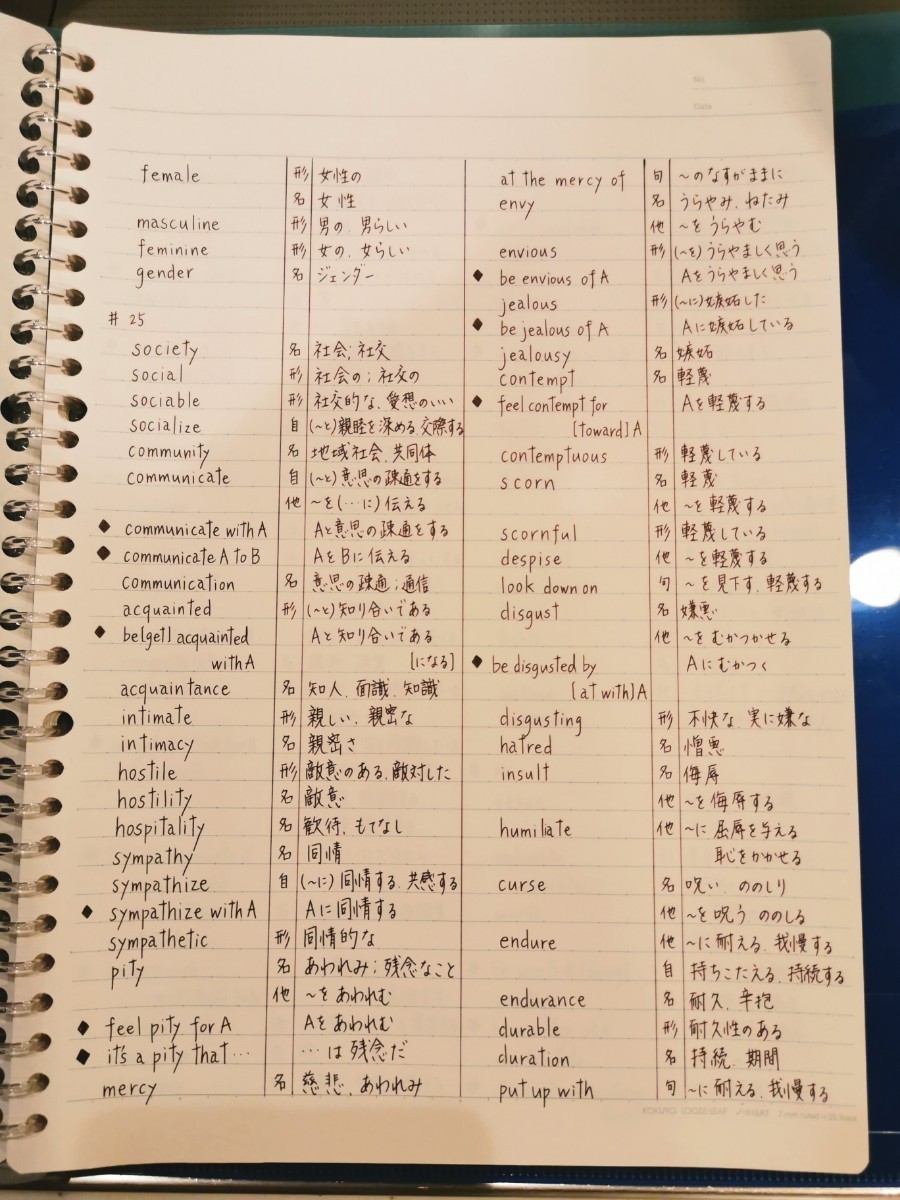 No.
Date
female 形 女性の
名 女性
masculine 形 男の、男らしい
feminine 形 女の、女らしい
gender 名 ジェンダー
# 25
society 名 社会; 社交
social 形 社会の; 社交の
sociable 形 社交的な、愛想のいい
socialize 自 (〜と)親睦を深める、交際する
community 名 地域社会、共同体
communicate 自 (〜と)意思の疎通をする
他 〜を(…に)伝える
◆ communicate with A Aと意思の疎通をする
◆ communicate A to B AをBに伝える
communication 名 意思の疎通; 通信
acquainted 形 (〜と)知り合いである
◆ be[get] acquainted Aと知り合いである
with A [になる]
acquaintance 名 知人、面識、知識
intimate 形 親しい、親密な
intimacy 名 親密さ
hostile 形 敵意のある、敵対した
hostility 名 敵意
hospitality 名 歓待、もてなし
sympathy 名 同情
sympathize 自 (〜に)同情する、共感する
◆ sympathize with A Aに同情する
sympathetic 形 同情的な
pity 名 あわれみ; 残念なこと
他 〜をあわれむ
◆ feel pity for A Aをあわれむ
◆ it's a pity that… …は残念だ
mercy 名 慈悲、あわれみ
at the mercy of 句 〜のなすがままに
envy 名 うらやみ、ねたみ
他 〜をうらやむ
envious 形 (〜を)うらやましく思う
◆ be envious of A Aをうらやましく思う
jealous 形 (〜に)嫉妬した
◆ be jealous of A Aに嫉妬している
jealousy 名 嫉妬
contempt 名 軽蔑
◆ feel contempt for Aを軽蔑する
[toward] A
contemptuous 形 軽蔑している
scorn 名 軽蔑
他 〜を軽蔑する
scornful 形 軽蔑している
despise 他 〜を軽蔑する
look down on 句 〜を見下す、軽蔑する
disgust 名 嫌悪
他 〜をむかつかせる
◆ be disgusted by Aにむかつく
[at with] A
disgusting 形 不快な、実に嫌な
hatred 名 憎悪
insult 名 侮辱
他 〜を侮辱する
humiliate 他 〜に屈辱を与える
恥をかかせる
curse 名 呪い、ののしり
他 〜を呪う ののしる
endure 他 〜に耐える、我慢する
自 持ちこたえる、持続する
endurance 名 耐久、辛抱
durable 形 耐久性のある
duration 名 持続、期間
put up with 句 〜に耐える、我慢する